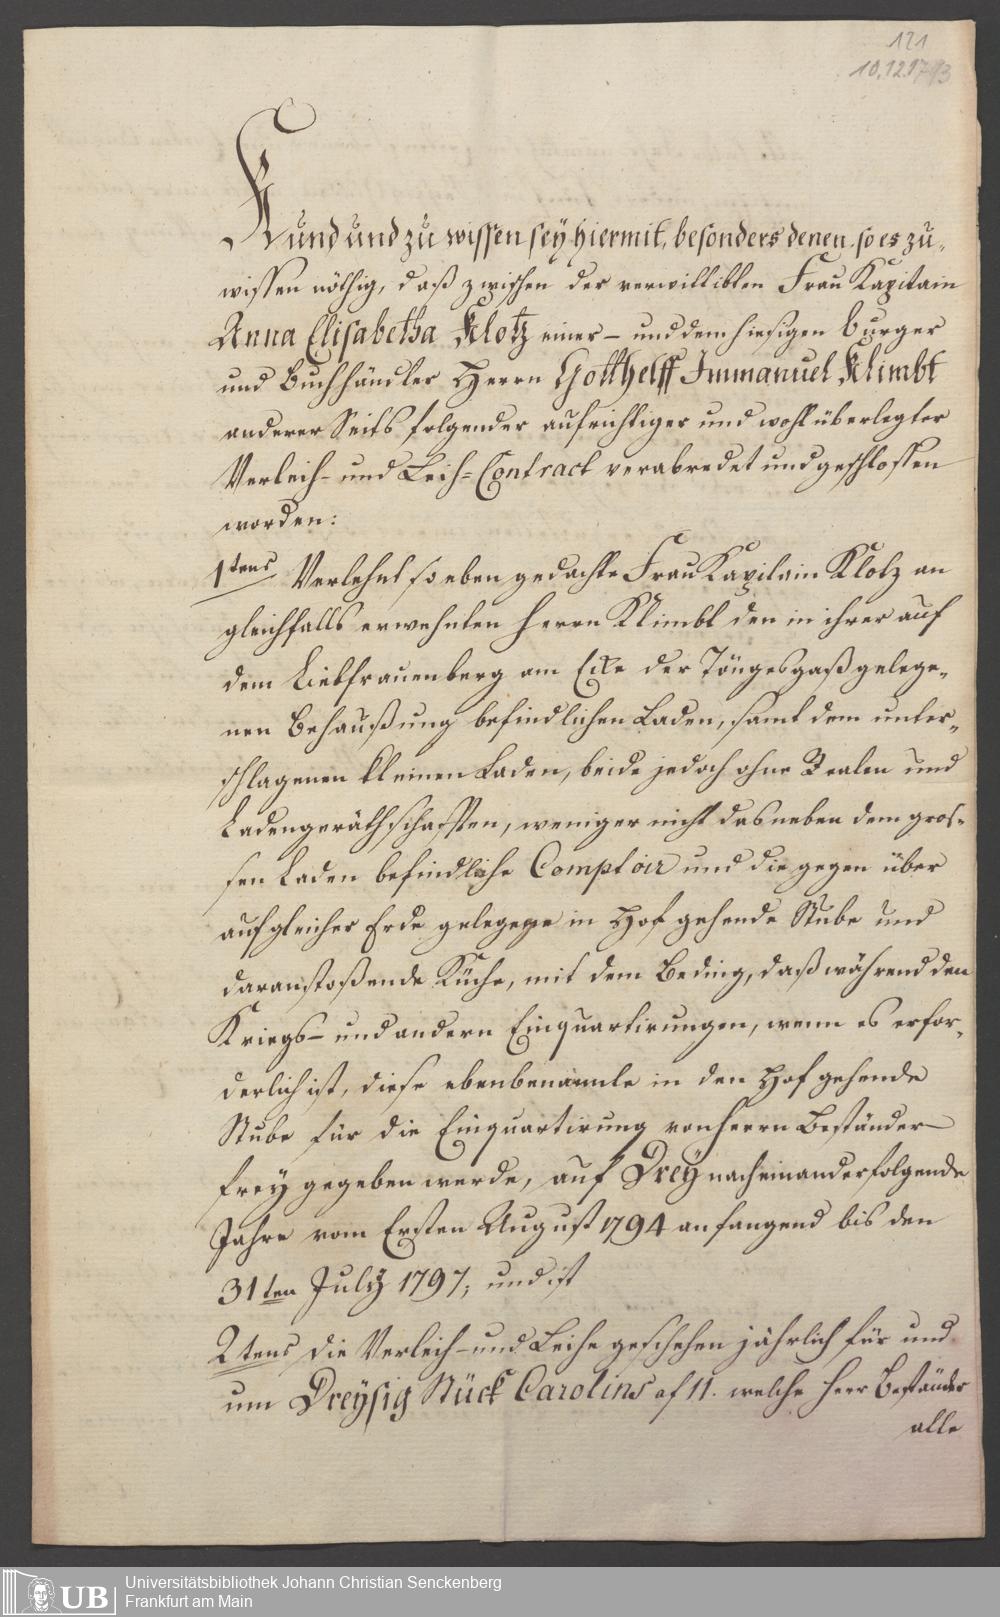 121
10.12.1793
Kund und zu wissen sey hiermit, besonders denen, so es zu„
wissen nöthig, daß zwischen der verwittibten Frau Kapitain
Anna Elisabetha Klotz einer– und dem hiesigen burger
und Buchhändler Herrn Gotthelff Immanuel Klimbt
anderer Seits folgender aufrichtiger und wohl überlegter
Verleih– und Leih=Contract verabredet und geschlossen
worden:
1tens Verlehnt so eben gedachte Frau Kapitain Klotz an
gleichfalls erwehnten Herrn Klimbt den in ihrer auf
dem Liebfrauenberg am Ecke der Töngesgaß gelege„
nen Behaußung befindlichen Laden, samt dem unter„
schlagenen kleinen Laden, beide jedoch ohne Realen und
Ladengeräthschafften, weniger nicht das neben dem gros„
sen Laden befindliche Comptoir und die gegen über
auf gleicher Erde gelegene in Hof gehende Stube und
daranstoßende Küche, mit dem Beding, daß während den
Kriegs– und andern Einquartirungen, wenn es erfor„
derlich ist, diese ebenbenannte in den Hof gehende
Stube für die Einquartirung von Herrn Beständer
frey gegeben werde, auf Drey nacheinanderfolgende
Jahre vom Ersten August 1794 anfangend bis den
31ten July 1797, und ist
2tens die Verleih– und Leihe geschehen jährlich für und
um Dreysig Stück Carolins af 11. welche Herr Beständer
alle
UB
Universitätsbibliothek Johann Christian Senckenberg
Frankfurt am Main